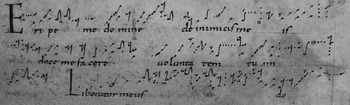 Eri pe me domine de inimicis me is
doce me facere volunta tem tu am
Liberator meus de